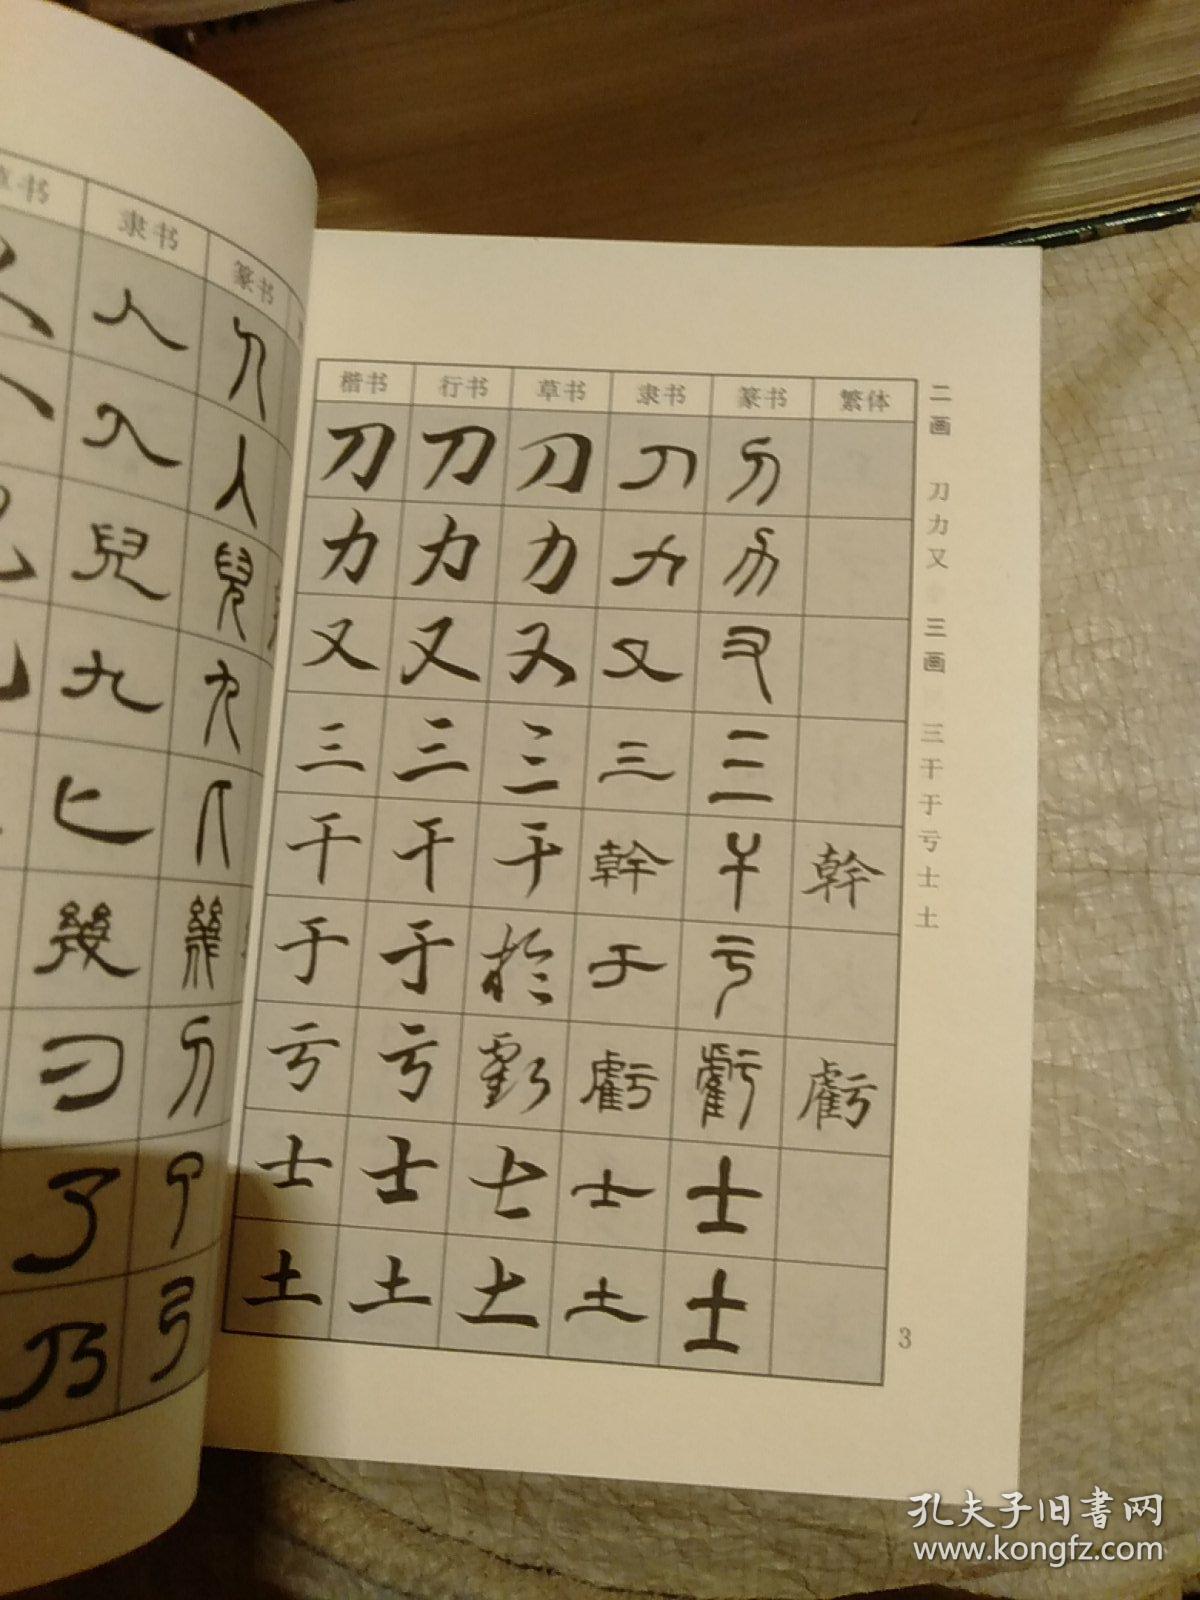 书 隶书 篆书
人 人
入 入
兒 兒
九 九
匕 匕
幾 幾
刁
了
乃
楷书 行书 草书 隶书 篆书 繁体
刀 刀 刀 刀 刀
力 力 力 力 力
又 又 又 又 又
三 三 三 三 三
干 干 干 幹 干 幹
于 于 於 于 于
亏 亏 虧 虧 虧 虧
士 士 士 士 士
土 土 土 土 土
二画 刀力又 三画 三干于亏士土
3
孔夫子旧书网
www.kongfz.com